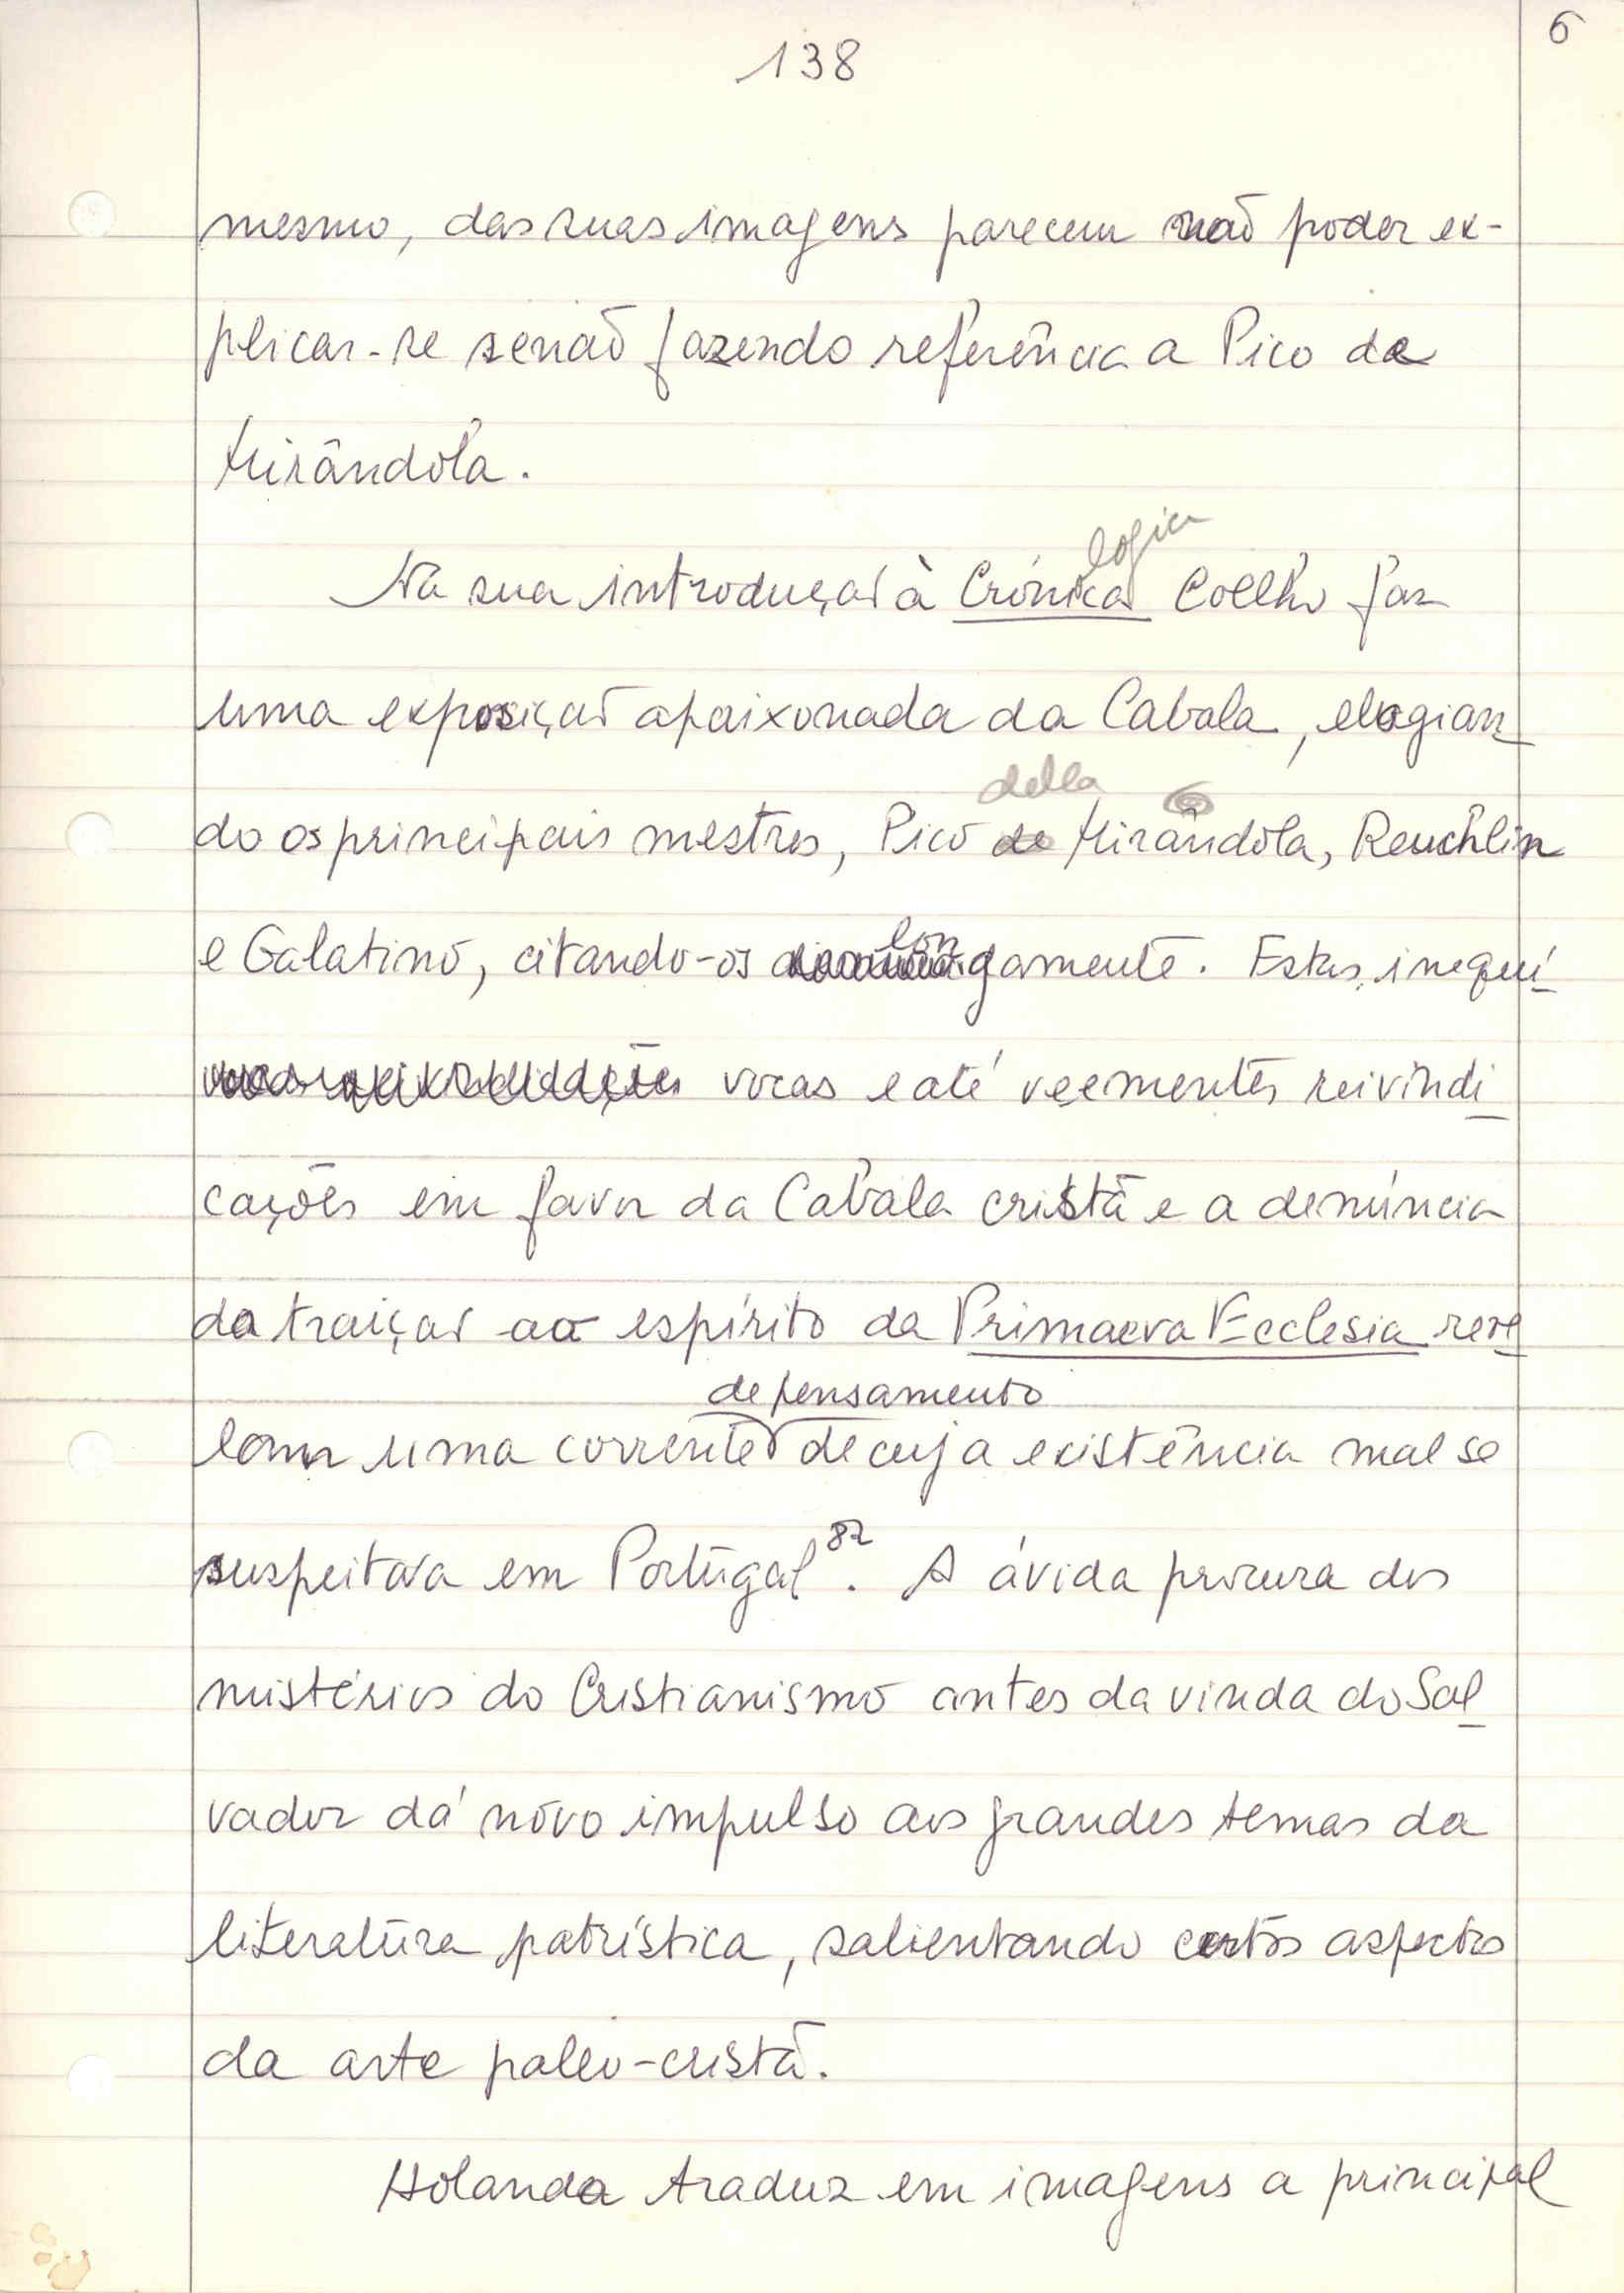 6
138
mesmo, das suas imagens parecem não poder ex-
plicar-se senão fazendo referência a Pico de
Mirândola.
logia
Na sua introdução à Crónica Coelho faz
uma exposição apaixonada da Cabala, elogian
della
do os principais mestres, Pico de Mirândola, Reuchlin
lon
e Galatino, citando-os gamente. Estas inequí
vocas e até veementes reivindi
cações em favor da Cabala cristã e a denúncia
da traição ao espírito da Primaeva Ecclesia reve
de pensamento
lam uma corrente de cuja existência mal se
suspeitava em Portugal 82. A ávida procura dos
mistérios do Cristianismo antes da vinda do Sal
vador dá novo impulso aos grandes temas da
literatura patrística, salientando certos aspectos
da arte paleo-cristã.
Holanda traduz em imagens a principal